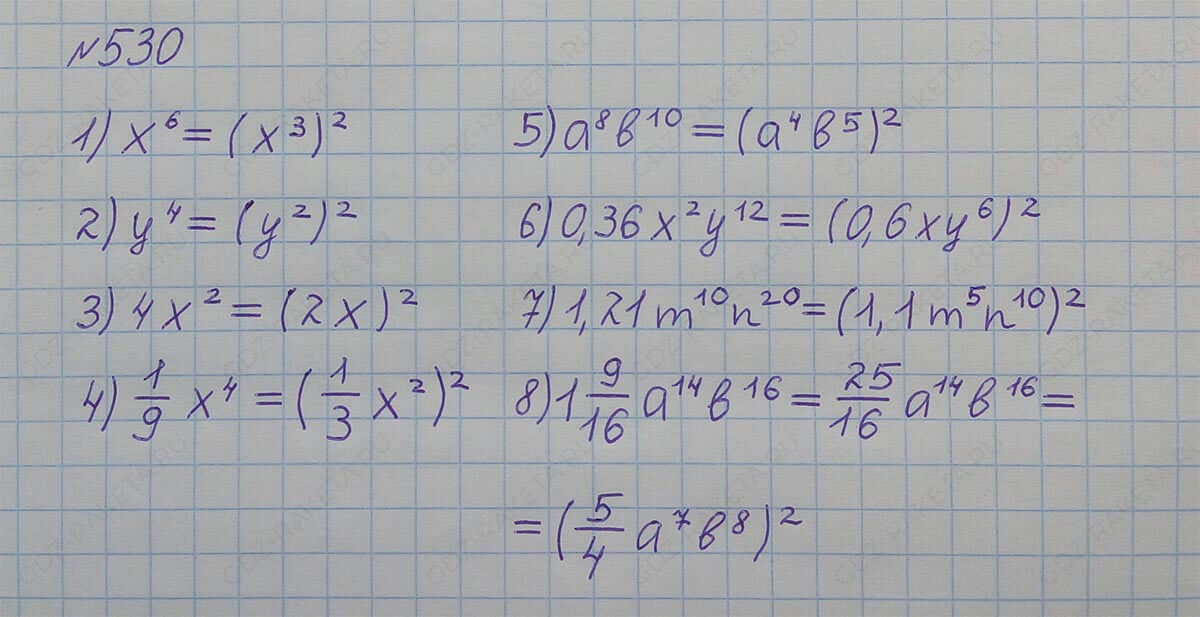 №530
1) x⁶ = (x³)²
2) y⁴ = (y²)²
3) 4x² = (2x)²
4) 1/9 x⁴ = (1/3 x²)²
5) a⁸b¹⁰ = (a⁴b⁵)²
6) 0,36x²y¹² = (0,6xy⁶)²
7) 1,21m¹⁰n²⁰ = (1,1m⁵n¹⁰)²
8) 1 9/16 a¹⁴b¹⁶ = 25/16 a¹⁴b¹⁶ =
= (5/4 a⁷b⁸)²
GDZ-RAKETA.RU